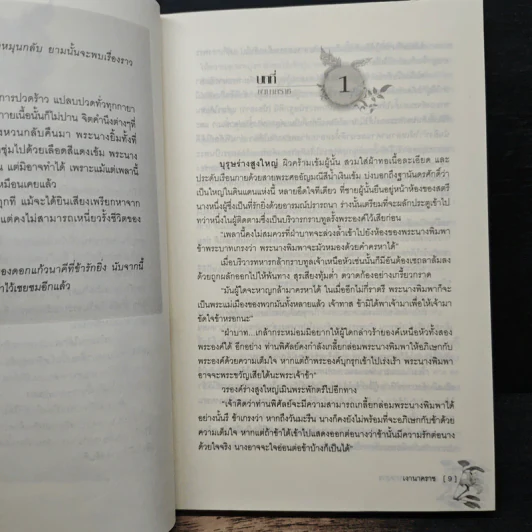 หมุนกลับ ยามนั้นจะพบเรื่องราว
การปวดร้าว แปลบปวดทั่วทุกกายา
กายเนื้อนั้นก็ไม่ปาน จิตคำนึงต่างๆที่
หวนกลับคืนมา พระนางยิ้มทั้งที่
ชุ่มไปด้วยเลือดสีแดงเข้ม พระนาง
แต่มิอาจทำได้ เพราะแม้แต่เพลานี้
เหมือนเคยแล้ว
ทุกที แม้จะได้ยินเสียงเพรียกหาจาก
แต่คงไม่สามารถเหนี่ยวรั้งชีวิตของ
องดอกแก้วนาคีที่ข้ารักยิ่ง นับจากนี้
าไว้เชยชมอีกแล้ว
บทที่
1
บุรุษร่างสูงใหญ่ ผิวคร้ามเข้มผู้นั้น สวมใส่ผ้าทอเนื้อละเอียด และ
ประดับเรือนกายด้วยสายพระศออัญมณีสีน้ำเงินเข้ม บ่งบอกถึงฐานันดรศักดิ์ว่า
เป็นใหญ่ในดินแดนแห่งนี้ หลายอึดใจทีเดียว ที่ชายผู้นั้นยืนอยู่หน้าห้องของสตรี
นางหนึ่งซึ่งเป็นที่รักยิ่งด้วยอารมณ์ปรารถนา ร่างนั้นเตรียมที่จะผลักประตูเข้าไป
ทว่าหนึ่งในผู้ติดตามซึ่งเป็นบริวารกราบทูลรั้งพระองค์ไว้เสียก่อน
"เพลานี้คงไม่สมควรที่ฝ่าบาทจะล่วงล้ำเข้าไปยังห้องของพระนางพิมพา
ข้าพระบาทเกรงว่า พระนางพิมพาจะมัวหมองด้วยคำครหาได้"
เมื่อบริวารทหารกล้ากราบทูลเจ้าเหนือหัวเช่นนั้นก็มีอันต้องเซถลาล้มลง
ด้วยถูกผลักออกไปให้พ้นทาง สุรเสียงทุ้มต่ำ ตวาดก้องอย่างเกรี้ยวกราด
"มันผู้ใดจะหาญกล้ามาครหาได้ ในเมื่ออีกไม่กี่ราตรี พระนางพิมพาก็จะ
เป็นพระแม่เมืองของพวกมันทั้งหลายแล้ว เจ้าทาส ข้ามิได้พาเจ้ามาเพื่อให้เจ้ามา
ขัดใจข้าหรอกนะ"
"ฝ่าบาท...เกล้ากระหม่อมมิอยากให้ผู้ใดกล่าวร้ายองค์เหนือหัวทั้งสอง
พระองค์ได้ อีกอย่าง ท่านพิศัลย์คงกำลังเกลี้ยกล่อมพระนางพิมพาให้อภิเษกกับ
พระองค์ด้วยความเต็มใจ หากแต่ถ้าพระองค์บุกรุกเข้าไปเร่งเร้า พระนางพิมพา
อาจจะพระขวัญเสียได้นะพระเจ้าข้า"
วรองค์ร่างสูงใหญ่เมินพระพักตร์ไปอีกทาง
"เจ้าคิดว่าท่านพิศัลย์จะมีความสามารถเกลี้ยกล่อมพระนางพิมพาได้
อย่างนั้นรึ ข้าเกรงว่า หากถึงวันมะรืน นางก็คงยังไม่พร้อมที่จะอภิเษกกับข้าด้วย
ความเต็มใจ หากแต่ถ้าข้าได้เข้าไปแสดงออกต่อนางว่าข้านั้นมีความรักต่อนาง
ด้วยใจจริง นางอาจจะใจอ่อนต่อข้าบ้างก็เป็นได้"
เงานาคราช [ 9 ]